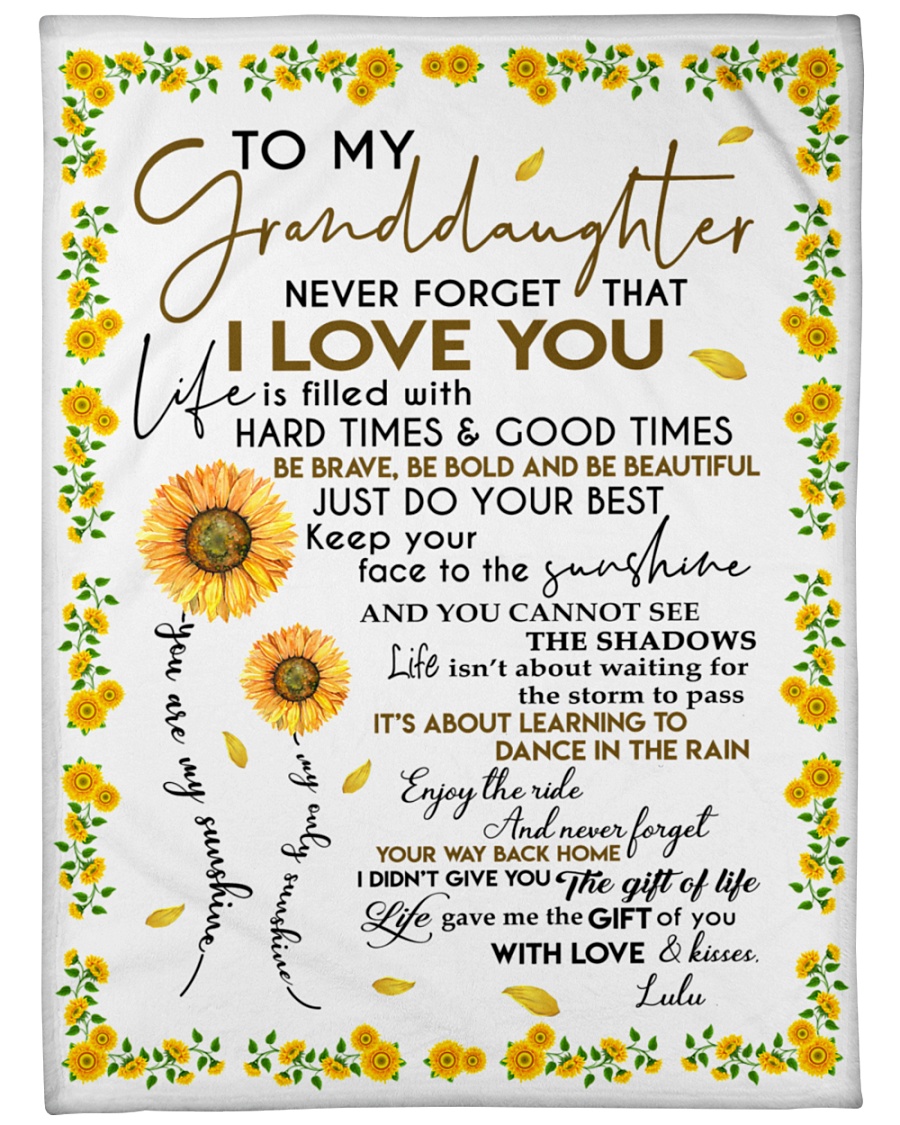 TO MY
Granddaughter
NEVER FORGET THAT
I LOVE YOU
Life is filled with
HARD TIMES & GOOD TIMES
BE BRAVE, BE BOLD AND BE BEAUTIFUL
JUST DO YOUR BEST
Keep your
face to the sunshine
AND YOU CANNOT SEE
THE SHADOWS
Life isn't about waiting for
the storm to pass
IT'S ABOUT LEARNING TO
DANCE IN THE RAIN
Enjoy the ride
And never forget
YOUR WAY BACK HOME
I DIDN'T GIVE YOU The gift of life
Life gave me the GIFT of you
WITH LOVE & kisses,
Lulu
you are my sunshine
my only sunshine